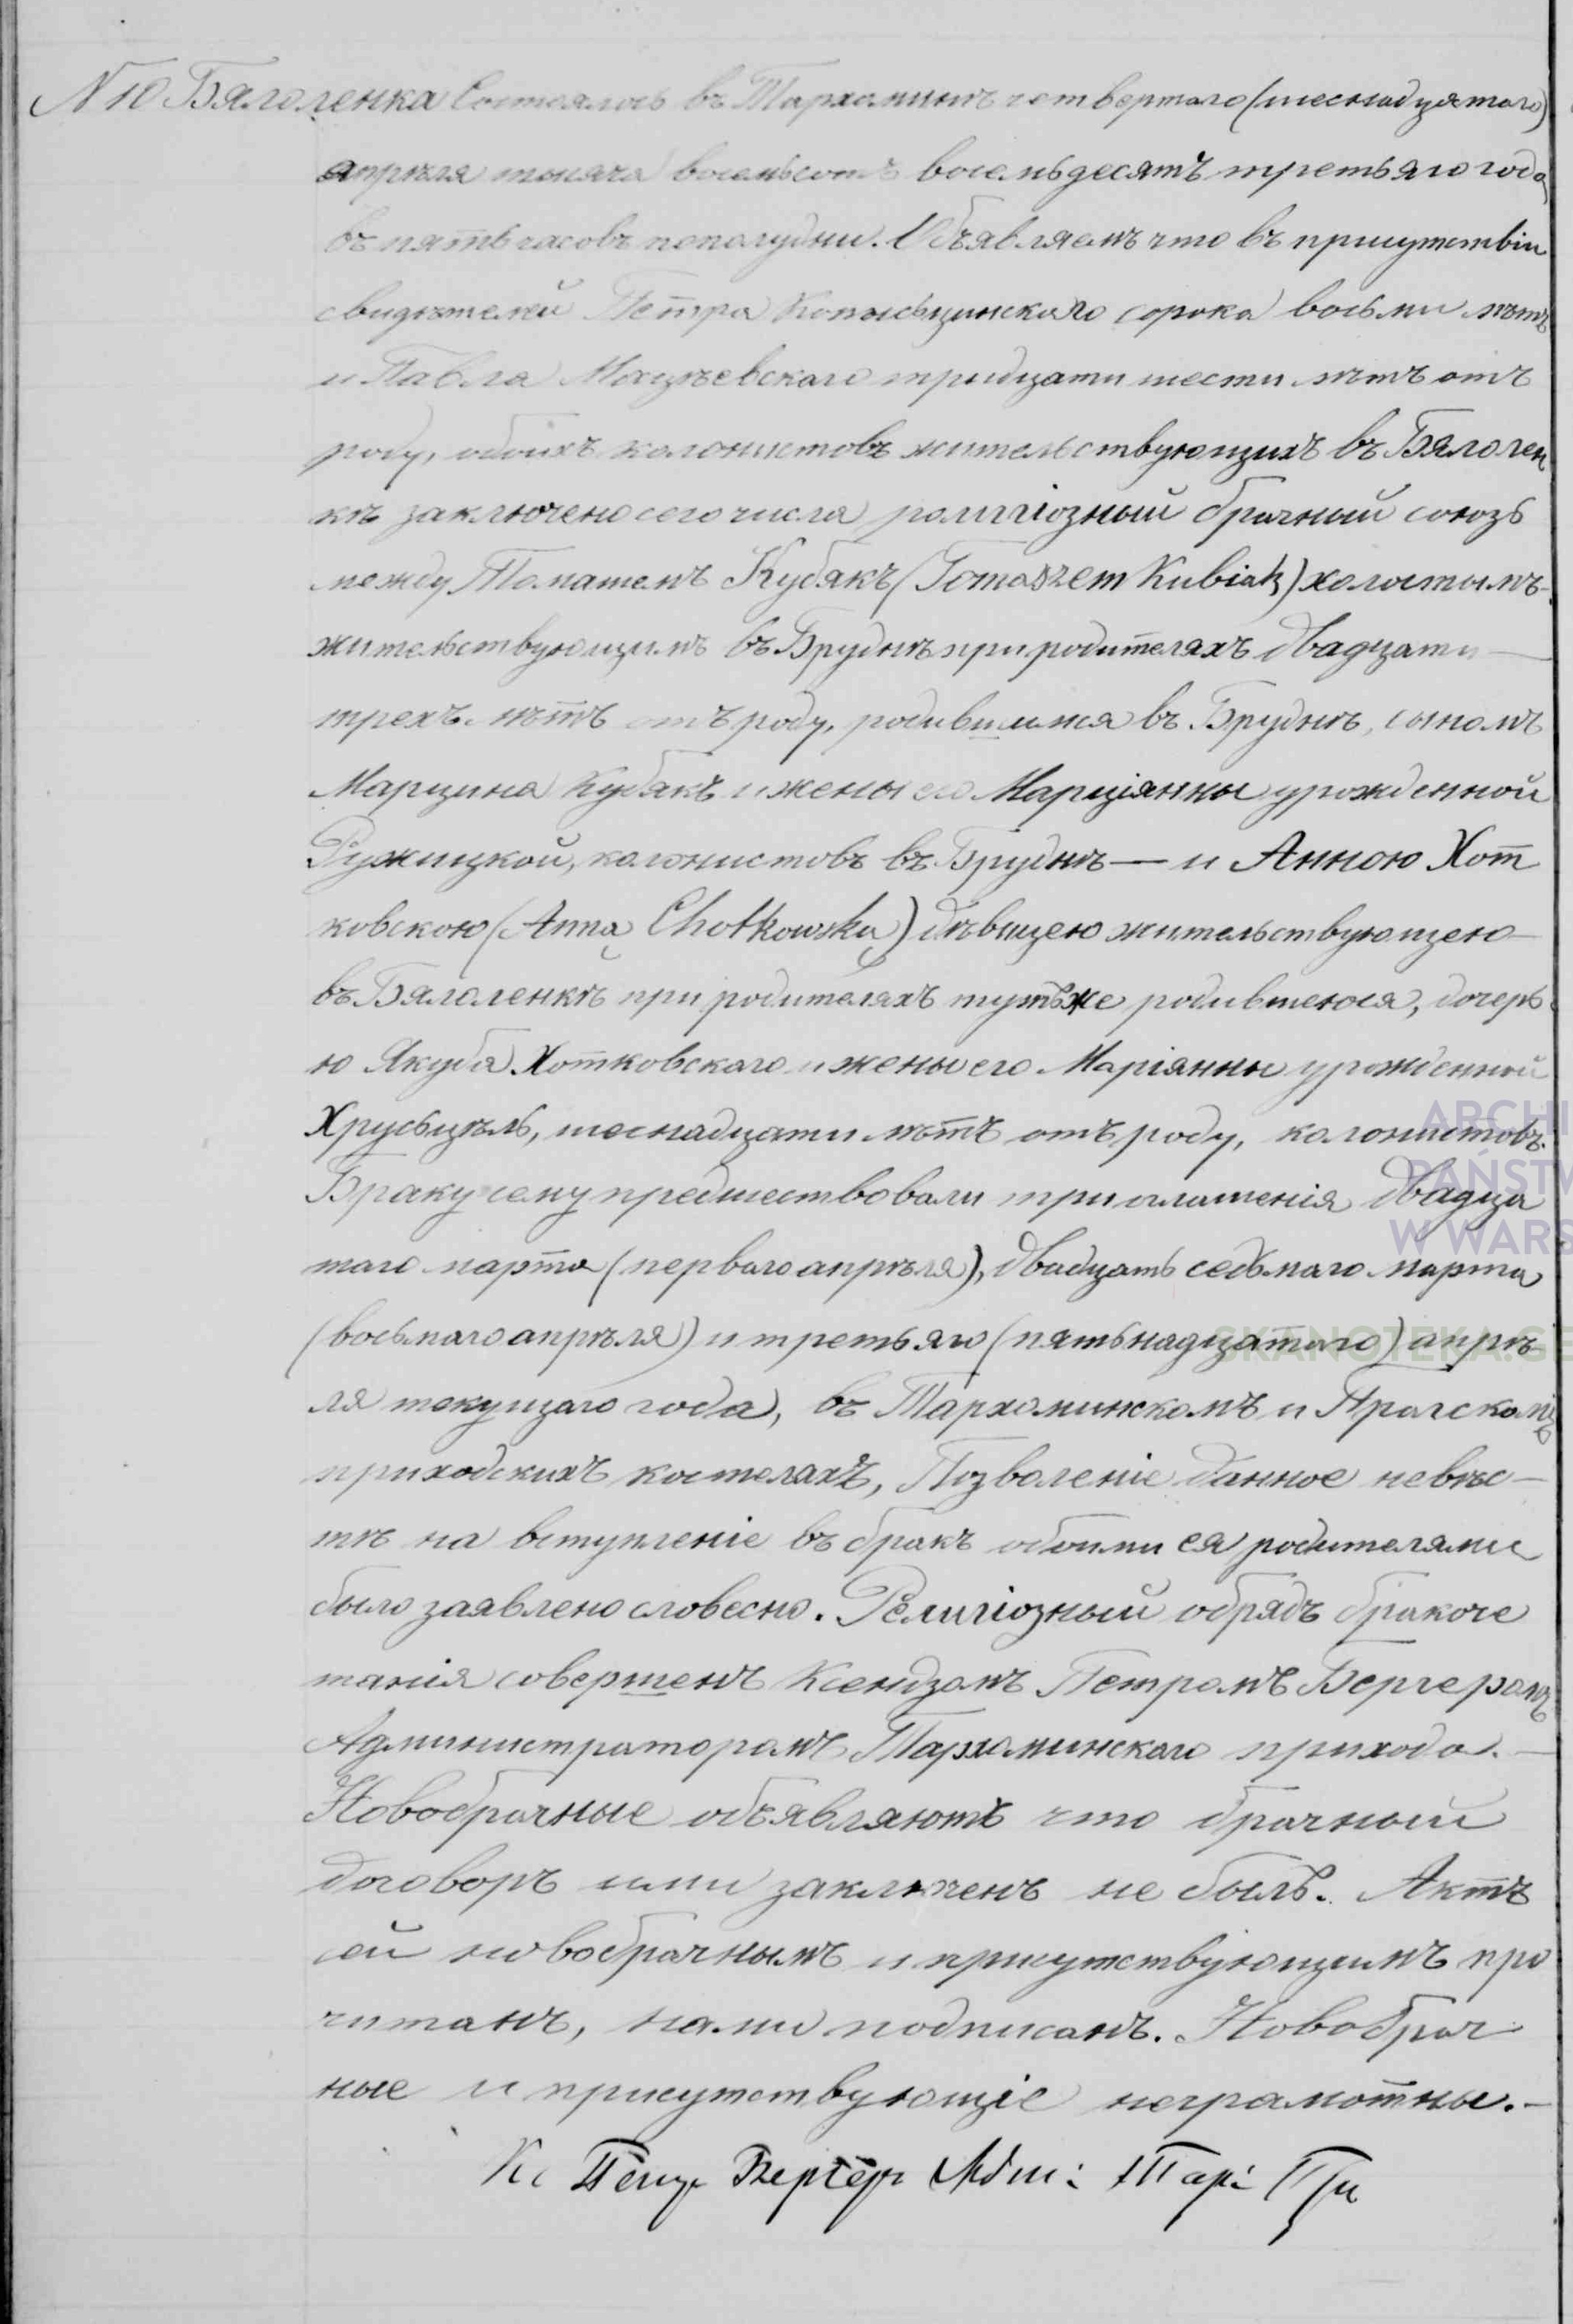 N 10 Бялоленка Состоялось въ Тархоминѣ четвертаго (шеснадцятаго)
апрѣля тысяча восемьсотъ восемьдесятъ третьяго года
въ пять часовъ пополудни. Объявляемъ что въ присутствіи
свидѣтелей Петра сорока восьми лѣтъ
и Павла Мацѣевскаго тридцати шести лѣтъ отъ
роду, обоихъ колонистовъ жительствующихъ въ Бялолен
кѣ заключено сего числа религіозный брачный союзъ
между Томашемъ Кубякъ (Tomaszem Kubiak) холостымъ
жительствующимъ въ Бруднѣ при родителяхъ двадцати
трехъ лѣтъ отъ роду, родившимся въ Бруднѣ, сыномъ
Марцина Кубякъ и жены его Марціянны урожденной
Ружицкой, колонистовъ въ Бруднѣ — и Анною Хот
ковскою (Anną Chotkowską) дѣвицею жительствующею
въ Бялоленкѣ при родителяхъ тутъже родившеюся, дочерь
ю Якуба Хотковскаго и жены его Маріянны урожденной
Хрусьцѣль, шеснадцати лѣтъ отъ роду, колонистовъ.
Браку сему предшествовали три оглашенія двадца
таго марта (перваго апрѣля), двадцать седьмаго марта
(восьмаго апрѣля) и третьяго (пятьнадцатаго) апрѣ
ля текущаго года, въ Тархоминскомъ и Прагскомъ
приходскихъ костелахъ, Позволеніе данное невѣс-
тѣ на вступленіе въ бракъ обоими ея родителями
было заявлено словесно. Религіозный обрядъ бракоче
танія совершенъ Ксендзомъ Петромъ Бергеромъ
Администраторомъ Тархоминскаго прихода. —
Новобрачные объявляютъ что брачный
договоръ ими заключенъ не былъ. Актъ
сей новобрачнымъ и присутствующимъ про
читанъ, нами подписанъ. Новобрач
ные и присутствующіе неграмотны. —
Кс Петръ Бергеръ Адм: Тар: Пр
ARCHI
PAŃSTW
W WARS
SKANOTEKA.GE